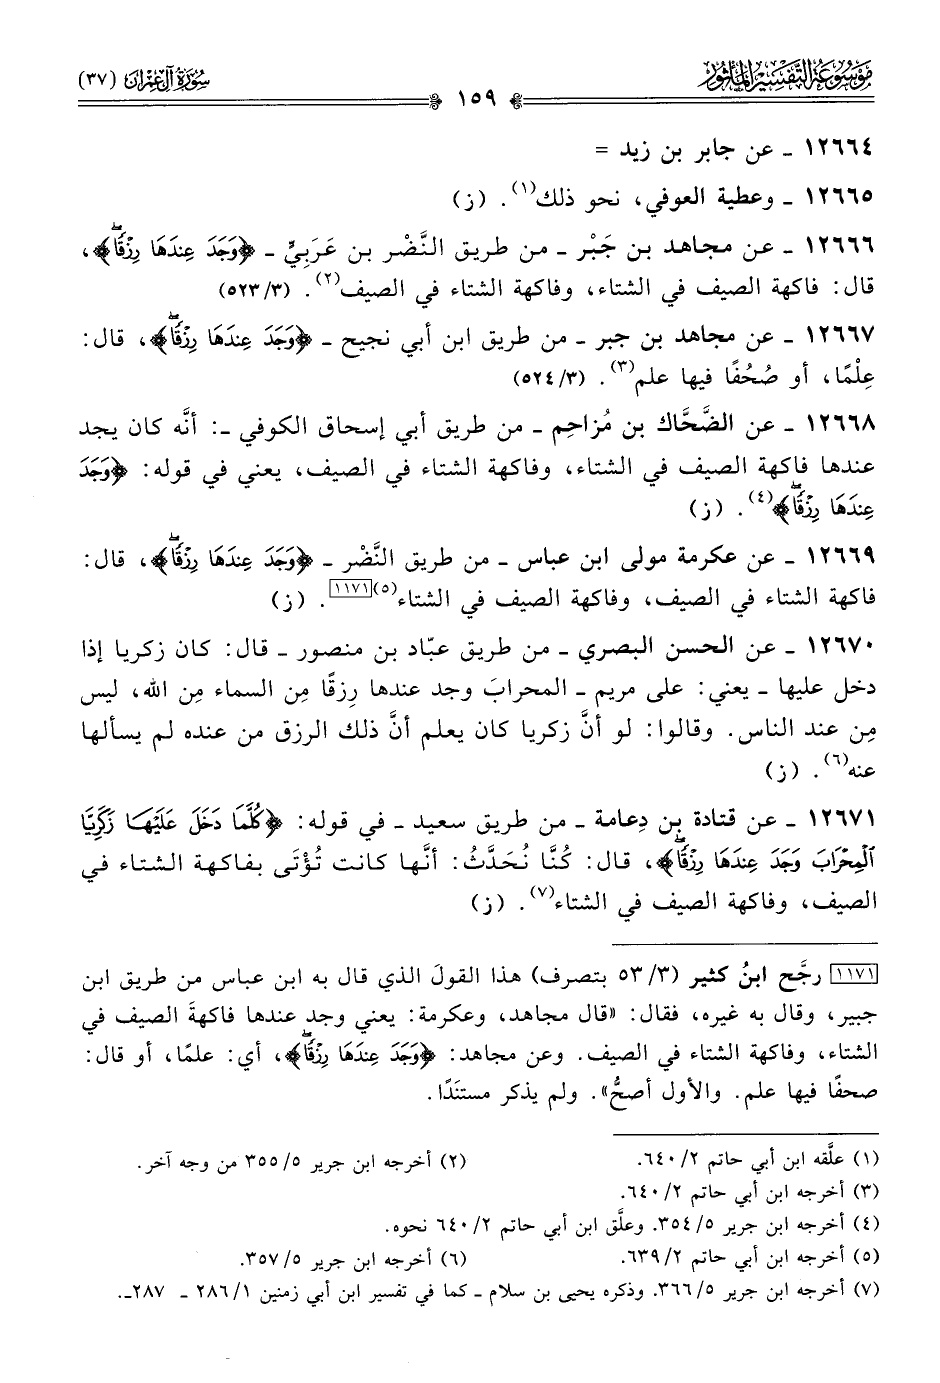 موسوعة التفسير المأثور
١٥٩
سورة آل عمران (٣٧)
١٢٦٦٤ ـ عن جابر بن زيد =
١٢٦٦٥ ـ وعطية العوفي، نحو ذلك(١). (ز)
١٢٦٦٦ ـ عن مجاهد بن جَبْر ـ من طريق النَّضْر بن عَرَبِيٍّ ـ ﴿وَجَدَ عِندَهَا رِزْقًاۖ﴾،
قال: فاكهة الصيف في الشتاء، وفاكهة الشتاء في الصيف(٢). (٥٢٣/٣)
١٢٦٦٧ ـ عن مجاهد بن جبر ـ من طريق ابن أبي نجيح ـ ﴿وَجَدَ عِندَهَا رِزْقًاۖ﴾، قال:
عِلْمًا، أو صُحُفًا فيها علم(٣). (٥٢٤/٣)
١٢٦٦٨ ـ عن الضَّحَّاك بن مُزاحِم ـ من طريق أبي إسحاق الكوفي ـ: أنَّه كان يجد
عندها فاكهة الصيف في الشتاء، وفاكهة الشتاء في الصيف، يعني في قوله: ﴿وَجَدَ
عِندَهَا رِزْقًاۖ﴾(٤). (ز)
١٢٦٦٩ ـ عن عكرمة مولى ابن عباس ـ من طريق النَّضْر ـ ﴿وَجَدَ عِندَهَا رِزْقًاۖ﴾، قال:
فاكهة الشتاء في الصيف، وفاكهة الصيف في الشتاء(٥)[١١٧١]. (ز)
١٢٦٧٠ ـ عن الحسن البصري ـ من طريق عبّاد بن منصور ـ قال: كان زكريا إذا
دخل عليها ـ يعني: على مريم ـ المحرابَ وجد عندها رِزقًا مِن السماء مِن الله، ليس
مِن عند الناس. وقالوا: لو أنَّ زكريا كان يعلم أنَّ ذلك الرزق من عنده لم يسألها
عنه(٦). (ز)
١٢٦٧١ ـ عن قتادة بن دِعامة ـ من طريق سعيد ـ في قوله: ﴿كُلَّمَا دَخَلَ عَلَيْهَا زَكَرِيَّا
ٱلْمِحْرَابَ وَجَدَ عِندَهَا رِزْقًاۖ﴾، قال: كُنَّا نُحَدَّثُ: أنَّها كانت تُؤْتَى بفاكهة الشتاء في
الصيف، وفاكهة الصيف في الشتاء(٧). (ز)
[١١٧١] رجَّح ابنُ كثير (٥٣/٣ بتصرف) هذا القولَ الذي قال به ابن عباس من طريق ابن
جبير، وقال به غيره، فقال: «قال مجاهد، وعكرمة: يعني وجد عندها فاكهةَ الصيف في
الشتاء، وفاكهة الشتاء في الصيف. وعن مجاهد: ﴿وَجَدَ عِندَهَا رِزْقًاۖ﴾، أي: علمًا، أو قال:
صحفًا فيها علم. والأول أصحُّ». ولم يذكر مستنَدًا.
(١) علَّقه ابن أبي حاتم ٦٤٠/٢. (٢) أخرجه ابن جرير ٣٥٥/٥ من وجه آخر.
(٣) أخرجه ابن أبي حاتم ٦٤٠/٢.
(٤) أخرجه ابن جرير ٣٥٤/٥. وعلَّق ابن أبي حاتم ٦٤٠/٢ نحوه.
(٥) أخرجه ابن أبي حاتم ٦٣٩/٢. (٦) أخرجه ابن جرير ٣٥٧/٥.
(٧) أخرجه ابن جرير ٣٦٦/٥. وذكره يحيى بن سلام ـ كما في تفسير ابن أبي زمنين ٢٨٦/١ ـ ٢٨٧ـ.